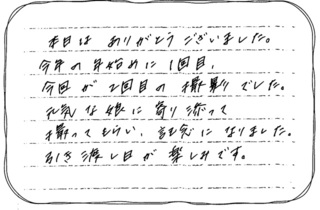 本日は ありがとう ございました。
今年の年始めに 1回目、
今回が 2回目の 撮影でした。
元気な娘に 寄り添って
撮ってもらい、記念に なりました。
引き渡し日が 楽しみです。